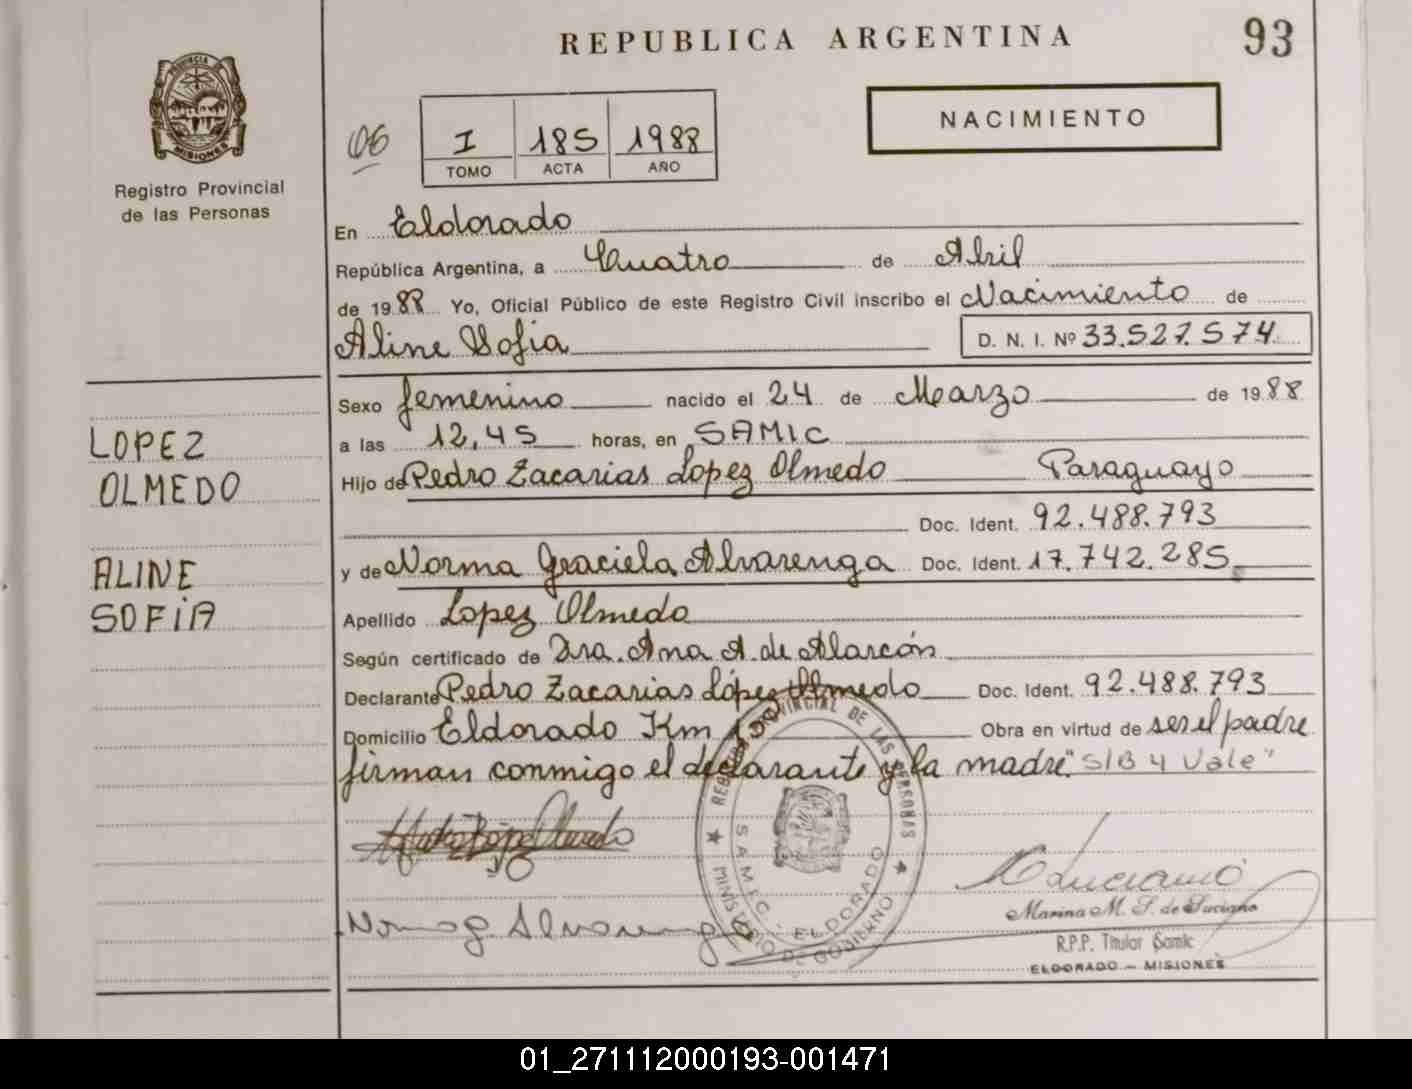 REPUBLICA ARGENTINA
93
PROVINCIA DE
MISIONES
Registro Provincial
de las Personas
06
I 185 1988
TOMO ACTA AÑO
NACIMIENTO
En Eldorado
República Argentina, a Cuatro de Abril
de 1988 Yo, Oficial Público de este Registro Civil inscribo el Nacimiento de
Aline Sofia D. N. I. Nº 33.527.574
Sexo femenino nacido el 24 de Marzo de 1988
a las 12,45 horas, en SAMIC
Hijo de Pedro Zacarias Lopez Olmedo Paraguayo
Doc. Ident. 92.488.793
y de Norma Graciela Alvarenga Doc. Ident. 17.742.285
Apellido Lopez Olmedo
Según certificado de Dra. Ana A. de Alarcón
Declarante Pedro Zacarias López Olmedo Doc. Ident. 92.488.793
Domicilio Eldorado Km Obra en virtud de ser el padre
firman conmigo el declarante y la madre "S/B y Vale"
LOPEZ
OLMEDO
ALINE
SOFIA
REGISTRO PROVINCIAL DE LAS PERSONAS
MINISTERIO DE GOBIERNO
ELDORADO
Norma G. Alvarenga
Luciano
Marina M. S. de Luciano
R.P.P. Titular Samic
ELDORADO - MISIONES
01_271112000193-001471